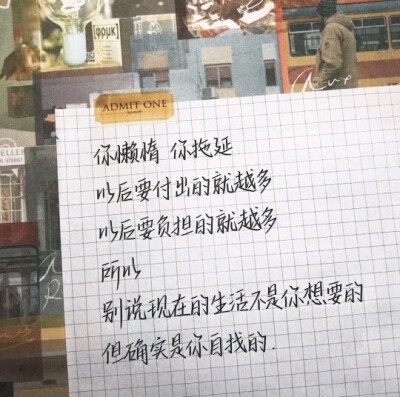 [фрмк]
ADMIT ONE
你懒惰 你拖延
以后要付出的就越多
以后要负担的就越多
所以
别说现在的生活不是你想要的
但确实是你自找的.